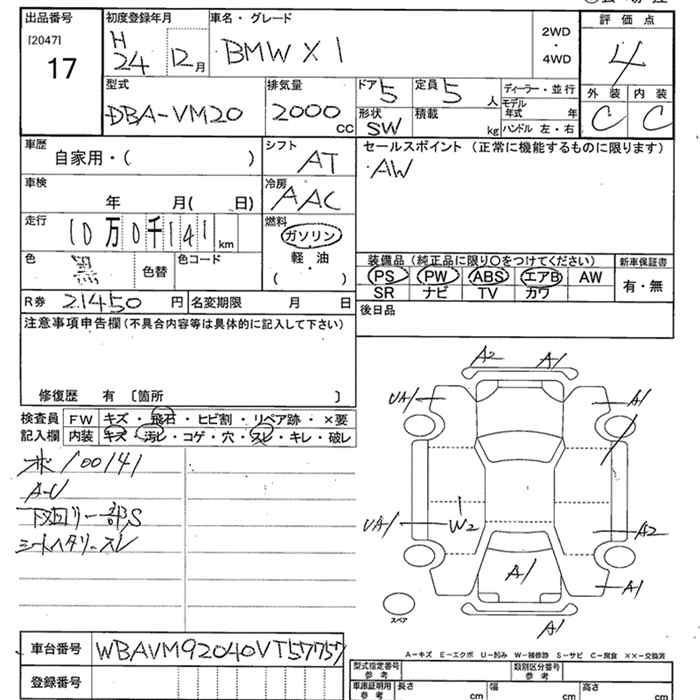 出品番号
[2047]
17
初度登録年月
H
24 12月
車名・グレード
BMW X1
2WD
・
4WD
評価点
4
外装 内装
C C
型式
DBA-VM20
排気量
2000
CC
ドア 5
形状 SW
定員 5 人
積載 kg
ディーラー・並行
モデル年式 年
ハンドル 左・右
車歴
自家用・( )
シフト
AT
セールスポイント (正常に機能するものに限ります)
AW
車検
年 月( 日)
冷房
AAC
走行
10万0千141 km
燃料
ガソリン
・
軽油
・
( )
色 黒 色替
色コード
装備品(純正品に限り○をつけてください)
PS PW ABS エアB AW
SR ナビ TV カワ
新車保証書
有・無
R券 21450 円
名変期限 月 日
後日品
注意事項申告欄(不具合内容等は具体的に記入して下さい)
修復歴 有 〔箇所 〕
検査員
記入欄
FW キズ・飛石・ヒビ割・リペア跡・×要
内装 キズ・汚レ・コゲ・穴・スレ・キレ・破レ
メ100141
A-U
下回り一部S
シートヘタリ-スレ
A2 A1
UA1 A1
UA1 W2 A2
A1 A1
A1
スペア
車台番号 WBAVM92040VT57757
登録番号
A-キズ E-エクボ U-凹み W-補修跡 S-サビ C-腐食 ××-交換済
型式指定番号
参考
類別区分番号
参考
車庫証明用
参考
長さ cm
幅 cm
高さ cm